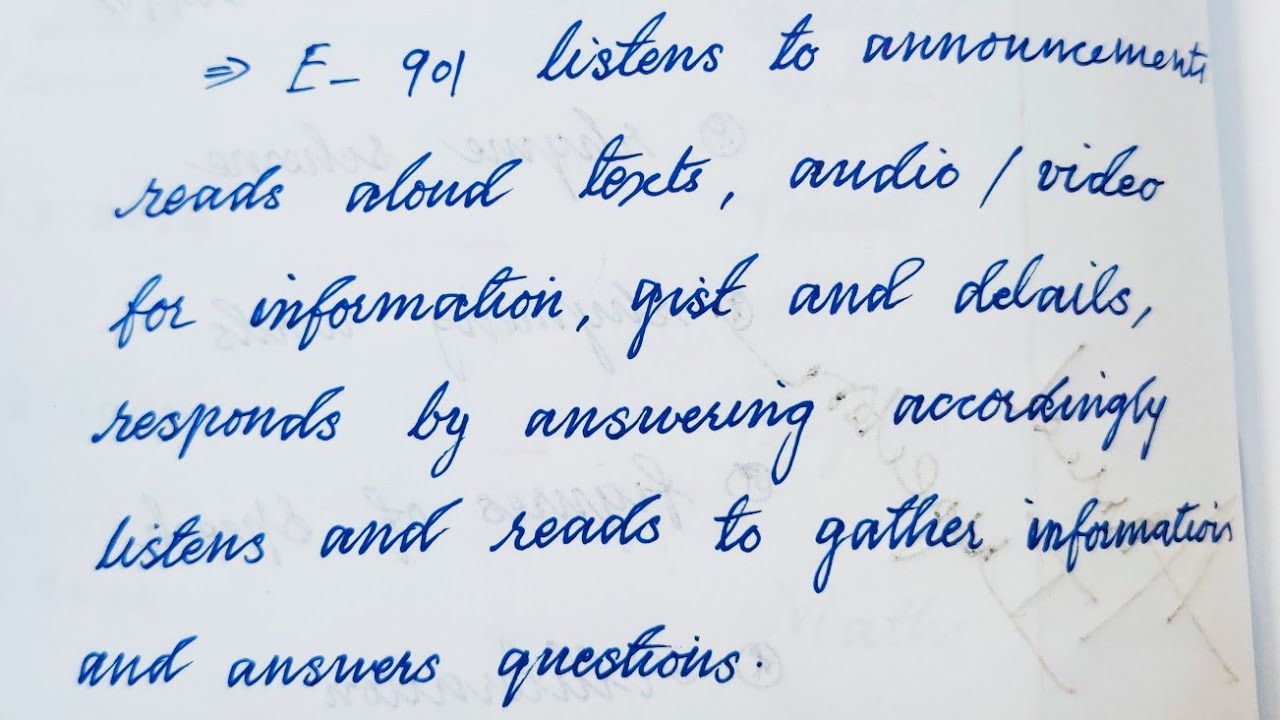 ⇒ E- 901 listens to announcements
reads aloud texts, audio / video
for information, gist and details,
responds by answering accordingly
listens and reads to gather information
and answers questions.